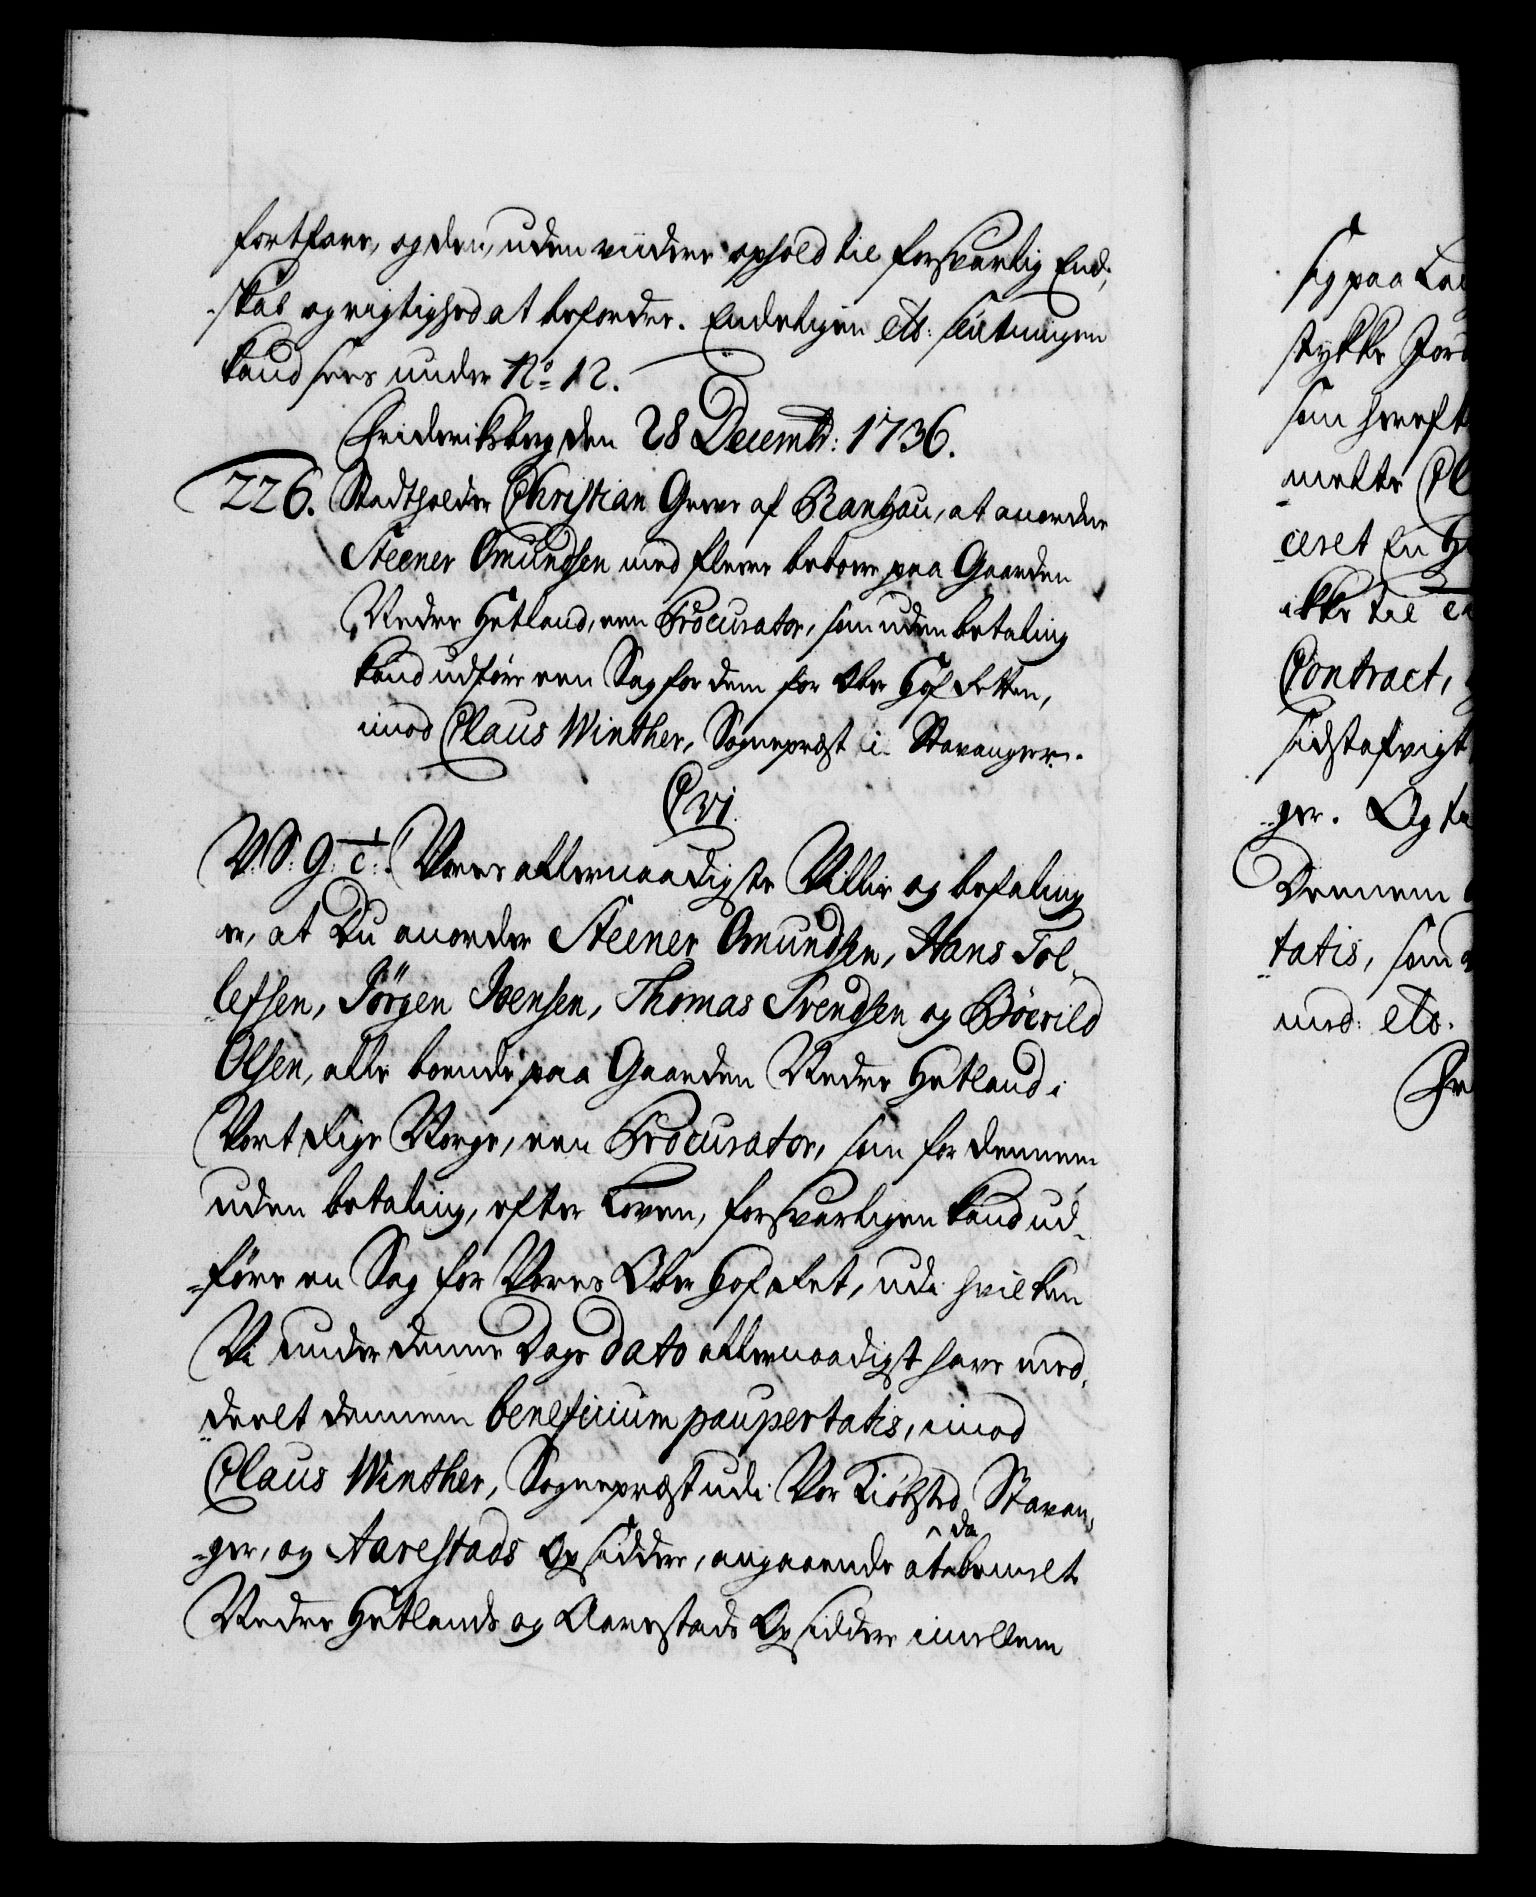 fortfare, og den, uden viidere ophold til forsvarlig End-
skab og rigtighed at befordre. Endeligen etc: slutningen
kand sees under No 12.
Friderichsberg den 28 Decembr: 1736.
226. Stadtholder Christian Greve af Rantzau, at anordne
Steener Omundsen med fleere beboere paa Gaarden
Nedre Hetland, een Procurator, som uden betaling
kand udføre een Sag for dem for Ober Hof Retten,
imod Claus Winther, Sognepræst i Stavanger.
C vi.
V. S: G: T: Vores allernaadigste Villie og befaling
er, at Du anordner Steener Omundsen, Hans Tol-
lefsen, Jörgen Joensen, Thomas Svendsen og Böerild
Olsen, alle boende paa Gaarden Nedre Hetland i
Vort Rige Norge, een Procurator, som for dennem
uden betaling, efter Loven, forsvarligen kand ud-
føre en Sag for Vores Ober Hof Ret, udi hvilken
Vi under denne Dags Dato allernaadigst have med-
deelt dennem beneficium paupertatis, imod
Claus Winther, Sognepræst udi Vor Kiøbsted Stavan-
ger, og Aarestads Opsidder, angaaende at da
Nedre Hetlands og Aarestads Opsiddere imellem
sig paa
stykke Jord
som
meldte
ceret En
ikke til
Contract,
sidst afvigt
ger. Og
Dennem
tatis, som
med: etc.
Fr